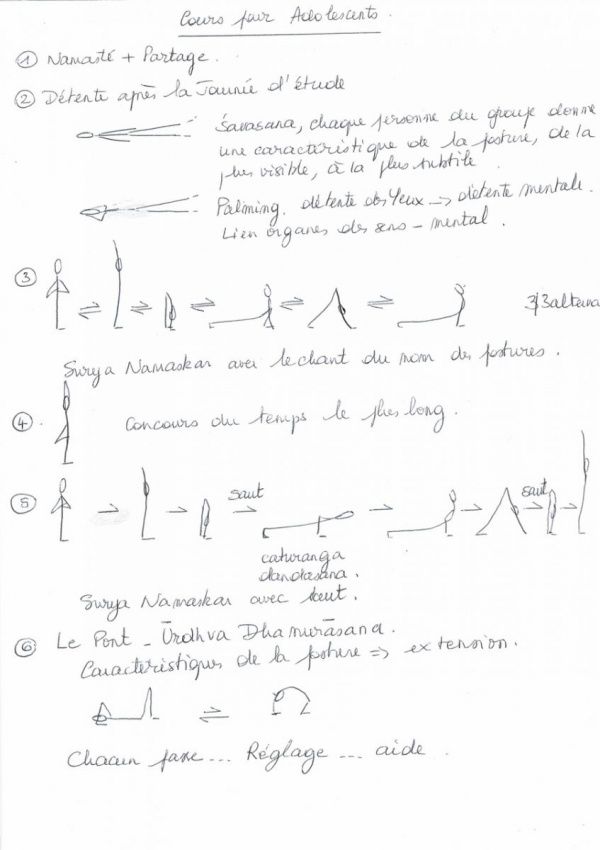 Cours pour Adolescents.
① Namasté + Partage.
② Détente après la Journée d'étude
Śavasana, chaque personne du groupe donne
une caractéristique de la posture, de la
plus visible, à la plus subtile
Palming. détente des Yeux → détente mentale.
Lien organes des sens - mental.
③ ⇌ ⇌ ⇌ ⇌ ⇌
Surya Namaskar avec le chant du nom des postures.
④ Concours du temps le plus long.
⑤ → → saut → → → saut
caturanga
dandasana.
Surya Namaskar avec saut.
⑥ Le Pont - Ūrdhva Dhanurāsana.
Caractéristiques de la posture ⇒ extension.
⇌
Chacun passe... Réglage ... aide.